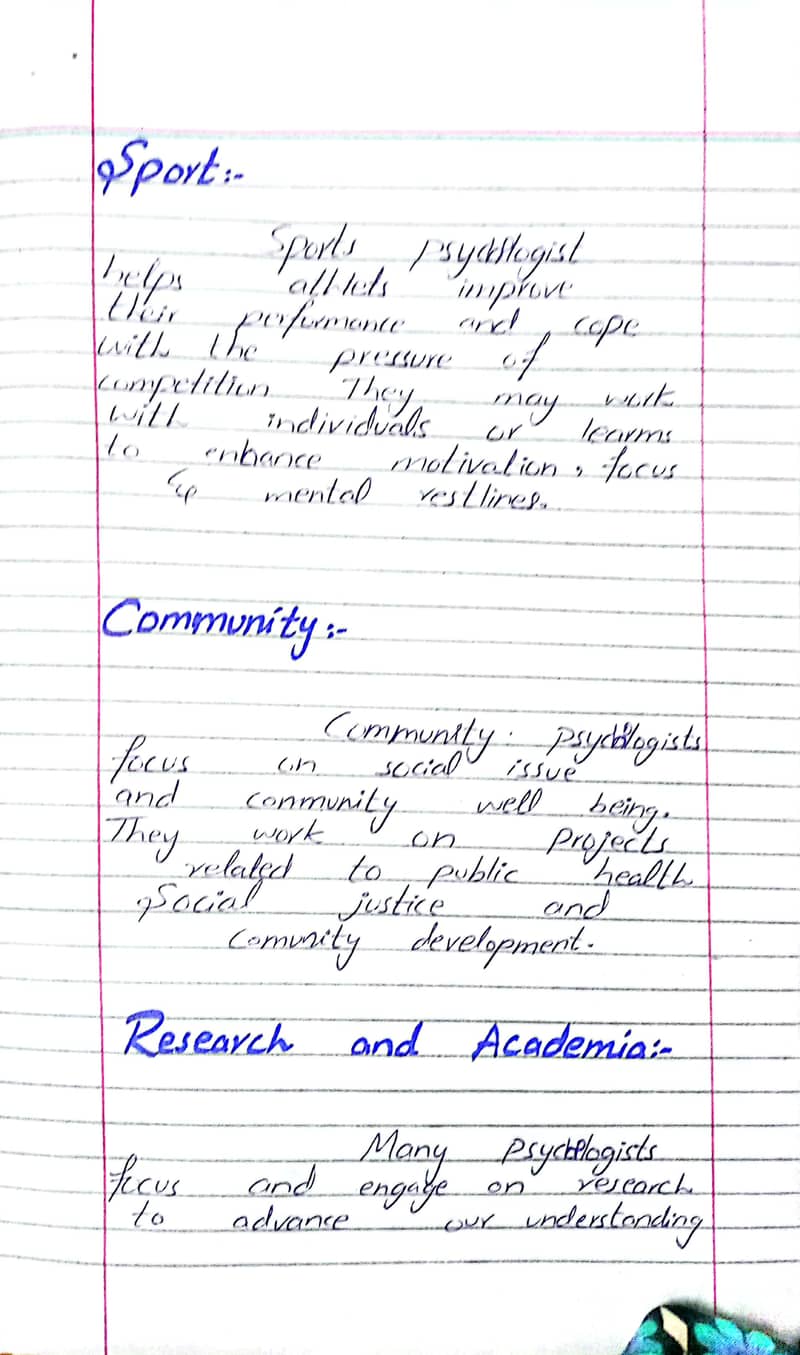 Sport:-
Sports psychologist
helps athlets improve
their performance and cope
with the pressure of
competition They may work
with individuals or learms
to enhance motivation, focus
mental restlines.
Community:-
Community psychologists
focus on social issue
and conmunity well being.
They work on projects
related to public health
Social justice and
comunity development.
Research and Academia:-
Many psychologists
focus and engage on research
to advance our understanding